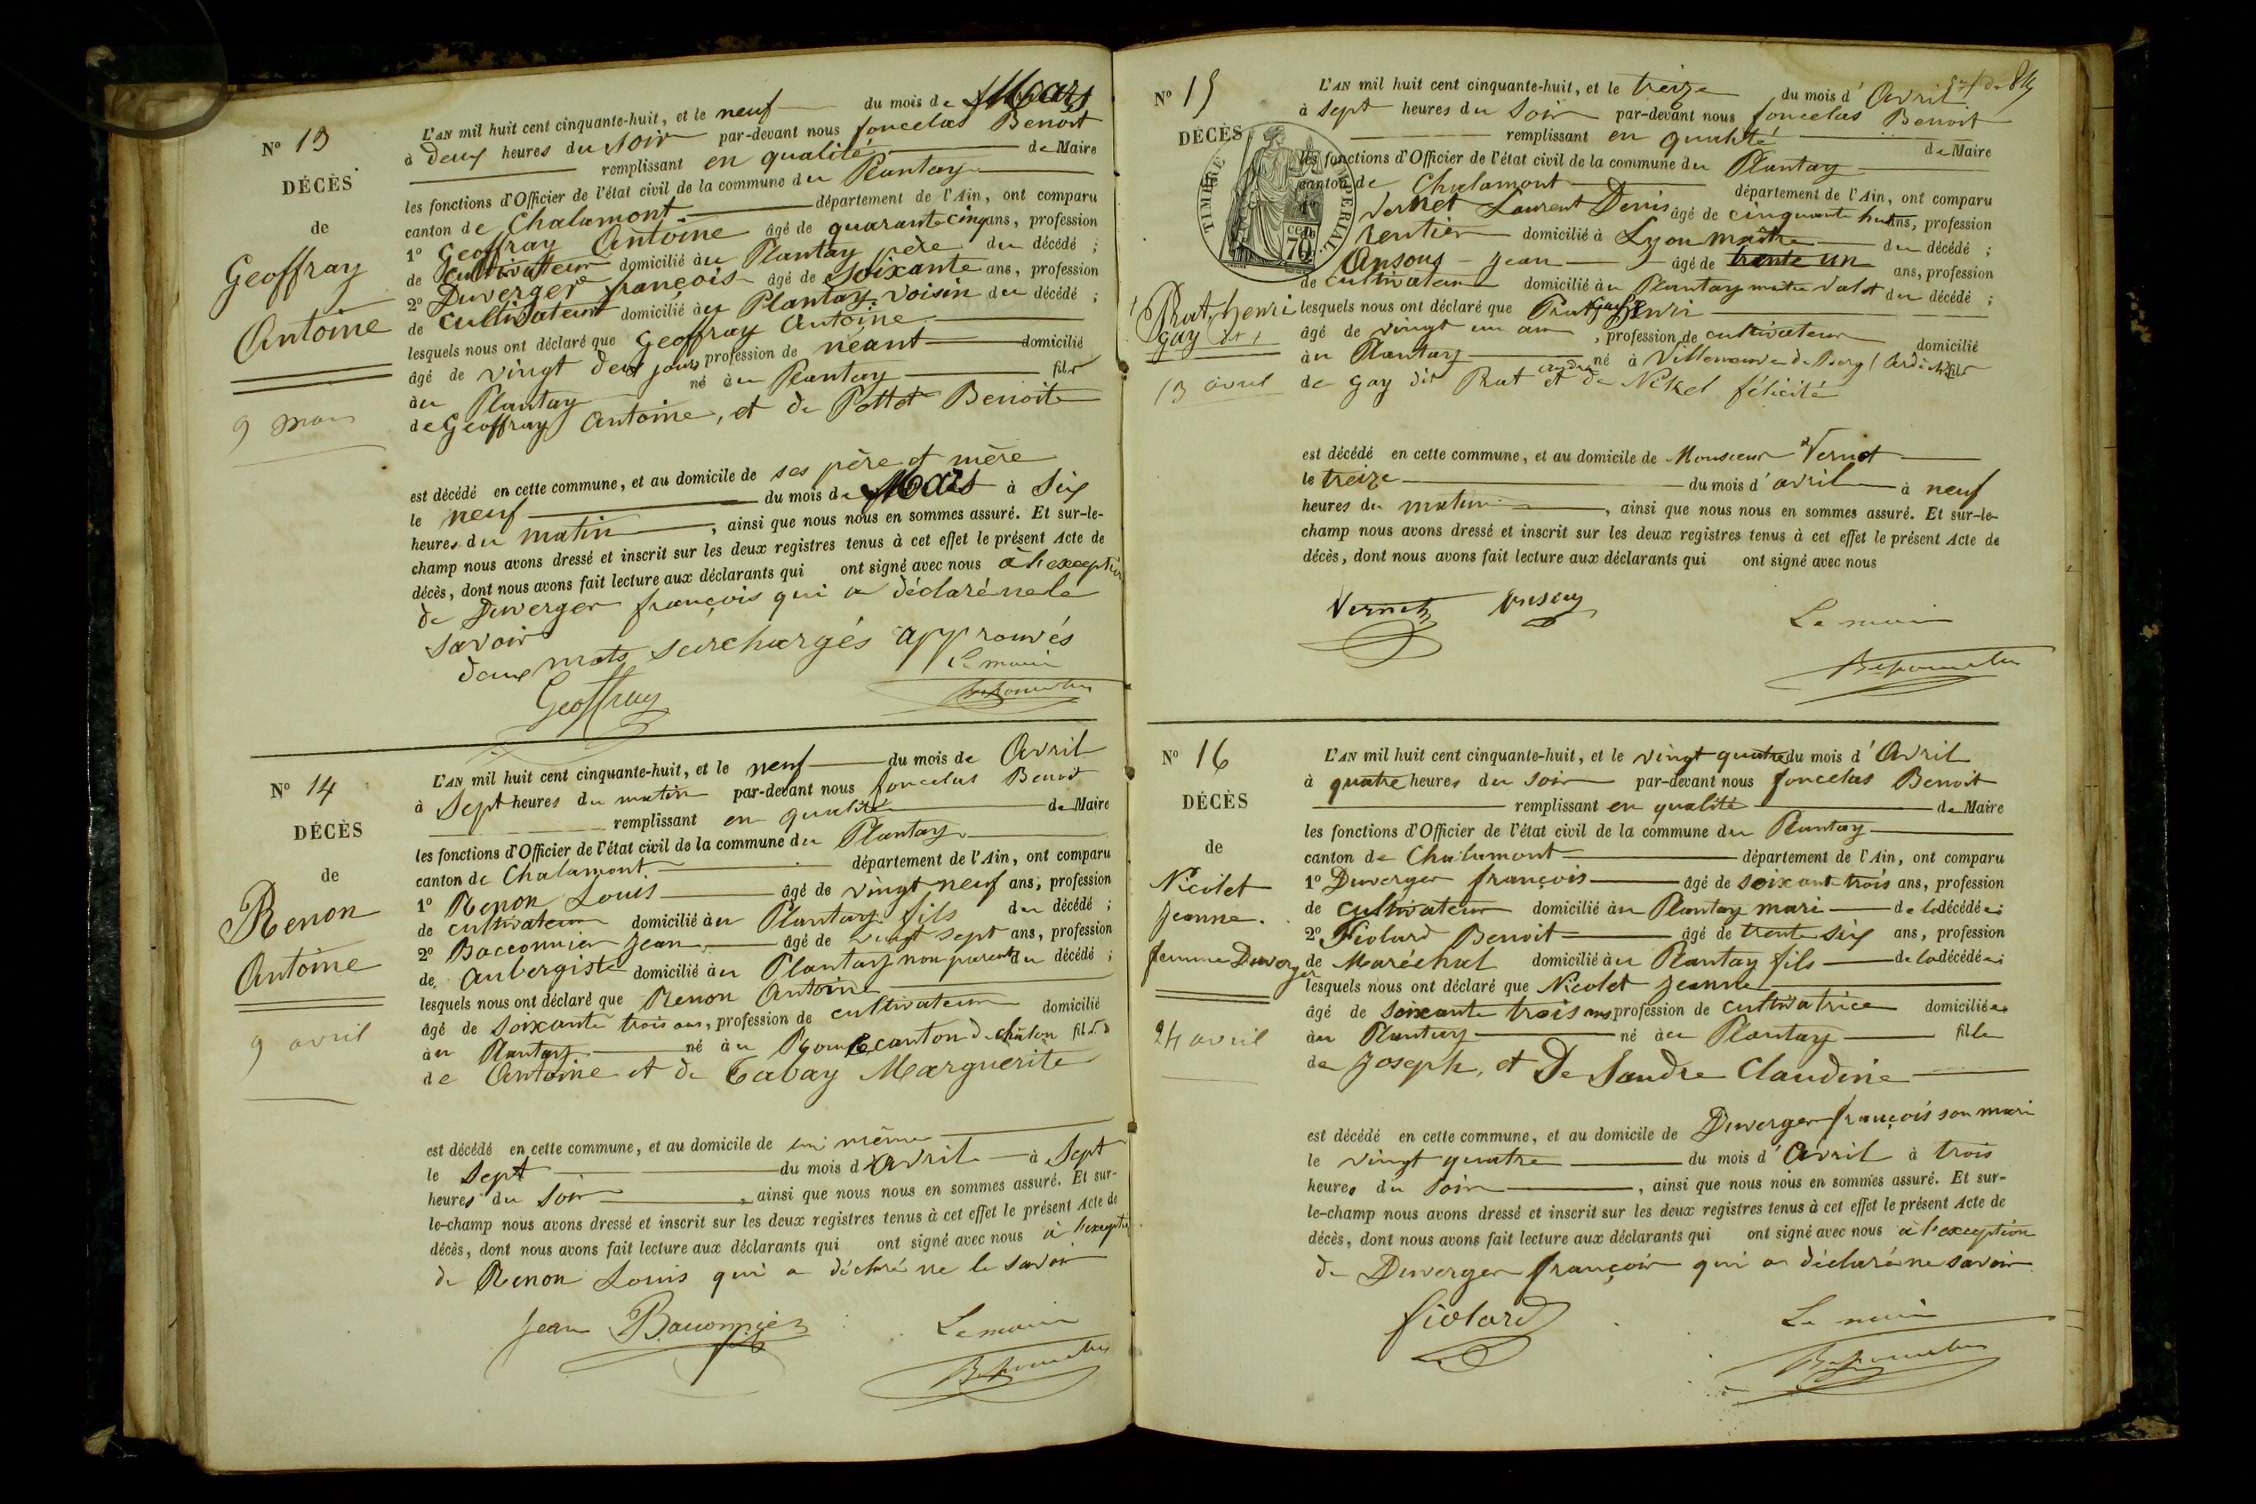 Nº 13
DÉCÈS
de
Geoffray
Antoine
9 mars
L'AN mil huit cent cinquante-huit, et le neuf du mois de Mars
à deux heures du soir par-devant nous foncelas Benoit
remplissant en qualité de Maire
les fonctions d'Officier de l'état civil de la commune du Plantay
canton de Chalamont département de l'Ain, ont comparu
1º Geoffray Antoine âgé de quarante cinq ans, profession
de cultivateur domicilié au Plantay père du décédé ;
2º Duverger françois âgé de soixante ans, profession
de cultivateur domicilié au Plantay voisin du décédé ;
lesquels nous ont déclaré que Geoffray Antoine
âgé de vingt deux jours profession de néant domicilié
au Plantay né au Plantay fils
de Geoffray Antoine, et de Pottet Benoite
est décédé en cette commune, et au domicile de ses père et mère
le neuf du mois de Mars à six
heures du matin, ainsi que nous nous en sommes assuré. Et sur-le-
champ nous avons dressé et inscrit sur les deux registres tenus à cet effet le présent Acte de
décès, dont nous avons fait lecture aux déclarants qui ont signé avec nous à l'exception
de Duverger françois qui a déclaré ne le
savoir
deux mots surchargés approuvés
Le maire
Geoffray
Nº 14
DÉCÈS
de
Renon
Antoine
9 avril
L'AN mil huit cent cinquante-huit, et le neuf du mois de Avril
à Sept heures du matin par-devant nous foncelas Benoit
remplissant en qualité de Maire
les fonctions d'Officier de l'état civil de la commune du Plantay
canton de Chalamont département de l'Ain, ont comparu
1º Renon Louis âgé de vingt neuf ans, profession
de cultivateur domicilié au Plantay fils du décédé ;
2º Bacconnier Jean âgé de vingt sept ans, profession
de Aubergiste domicilié au Plantay non parent du décédé ;
lesquels nous ont déclaré que Renon Antoine
âgé de soixante trois ans, profession de cultivateur domicilié
au Plantay né au canton de fils
de Antoine et de Tabay Marguerite
est décédé en cette commune, et au domicile de lui même
le sept du mois d'Avril à Sept
heures du soir, ainsi que nous nous en sommes assuré. Et sur-
le-champ nous avons dressé et inscrit sur les deux registres tenus à cet effet le présent Acte de
décès, dont nous avons fait lecture aux déclarants qui ont signé avec nous à l'exception
de Renon Louis qui a déclaré ne le savoir
Jean Bacconnier Le maire
Nº 15
DÉCÈS
TIMBRE IMPERIAL
70
Prat henri
gay dit
13 avril
L'AN mil huit cent cinquante-huit, et le treize du mois d'Avril
à sept heures du soir par-devant nous foncelas Benoit
remplissant en qualité de Maire
les fonctions d'Officier de l'état civil de la commune du Plantay
canton de Chalamont département de l'Ain, ont comparu
Vernet Laurent Denis âgé de cinquante huit ans, profession
rentier domicilié à Lyon maître du décédé ;
Ansouy Jean âgé de trente un ans, profession
de cultivateur domicilié au Plantay maitre valet du décédé ;
lesquels nous ont déclaré que Prat henri
âgé de vingt un ans, profession de cultivateur domicilié
au Plantay né à Villeneuve de Berg (Ardèche) fils
de Gay dit Prat andré et de Nikel félicité
est décédé en cette commune, et au domicile de Monsieur Vernet
le treize du mois d'avril à neuf
heures du matin, ainsi que nous nous en sommes assuré. Et sur-le-
champ nous avons dressé et inscrit sur les deux registres tenus à cet effet le présent Acte de
décès, dont nous avons fait lecture aux déclarants qui ont signé avec nous
Vernet Ansouy Le maire
Nº 16
DÉCÈS
de
Nicolet
Jeanne.
femme Duverger
24 avril
L'AN mil huit cent cinquante-huit, et le vingt quatre du mois d'Avril
à quatre heures du soir par-devant nous foncelas Benoit
remplissant en qualité de Maire
les fonctions d'Officier de l'état civil de la commune du Plantay
canton de Chalamont département de l'Ain, ont comparu
1º Duverger françois âgé de soixante trois ans, profession
de cultivateur domicilié au Plantay mari de la décédée
2º Fiolard Benoit âgé de trente six ans, profession
de Maréchal domicilié au Plantay fils de la décédée
lesquels nous ont déclaré que Nicolet Jeanne
âgé de soixante trois ans profession de cultivatrice domiciliée
au Plantay né au Plantay fille
de Joseph, et De Sandre Claudine
est décédé en cette commune, et au domicile de Duverger françois son mari
le vingt quatre du mois d'Avril à trois
heures du soir, ainsi que nous nous en sommes assuré. Et sur-
le-champ nous avons dressé et inscrit sur les deux registres tenus à cet effet le présent Acte de
décès, dont nous avons fait lecture aux déclarants qui ont signé avec nous à l'exception
de Duverger françois qui a déclaré ne savoir
fiolard Le maire